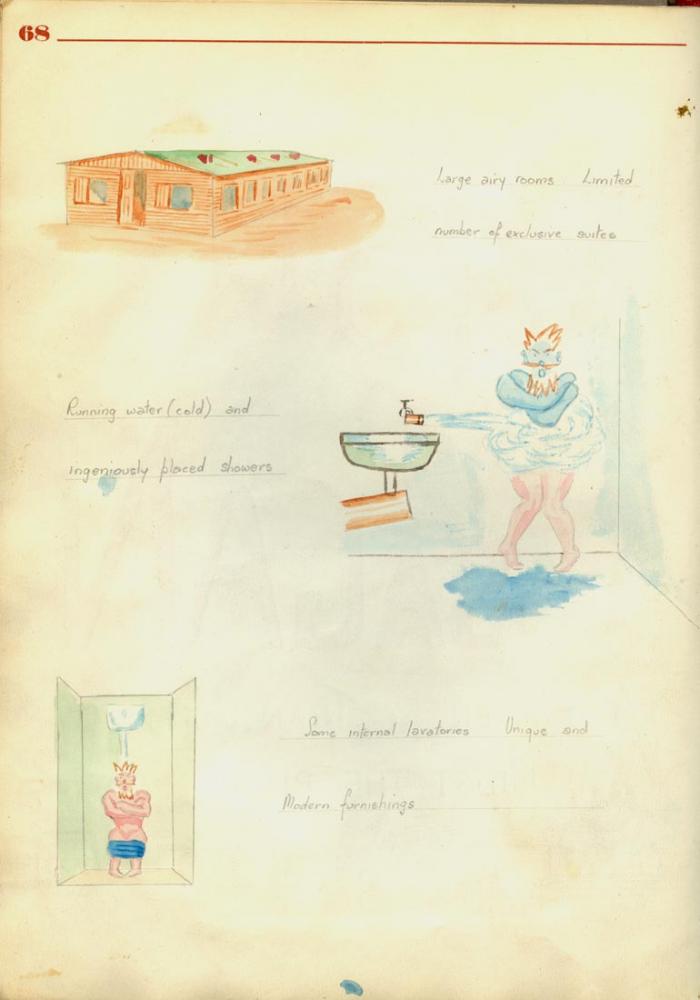 68
Large airy rooms Limited
number of exclusive suites
Running water (cold) and
ingeniously placed showers
Some internal lavatories Unique and
Modern furnishings